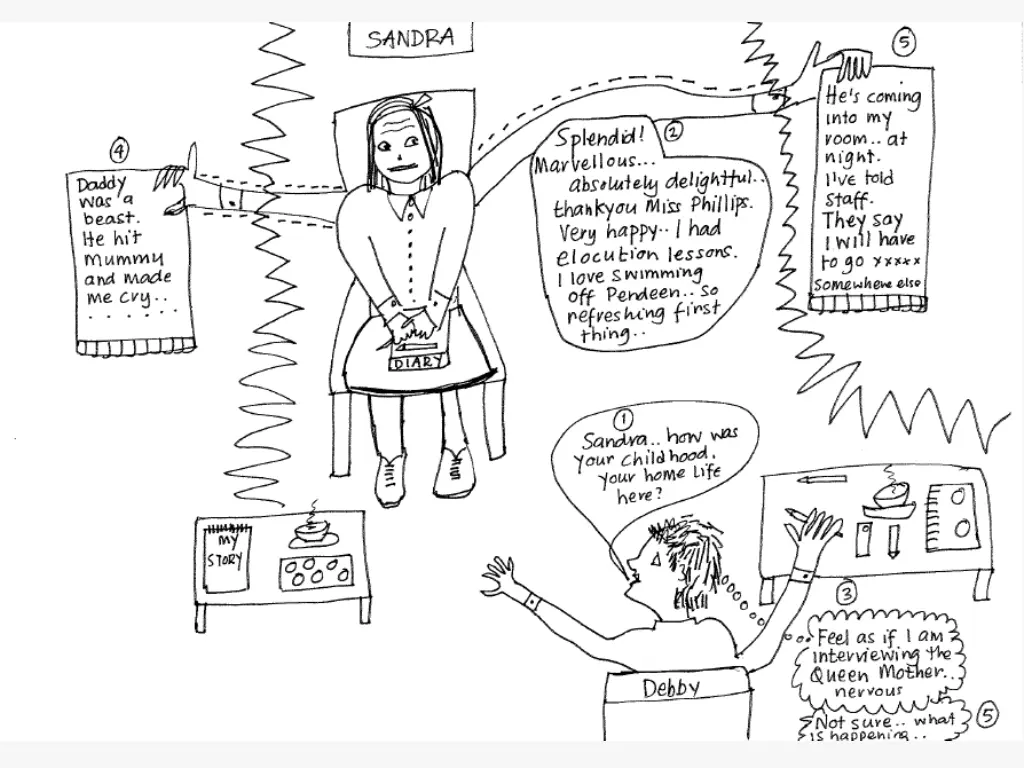 SANDRA
1
Sandra.. how was
your childhood.
your home life
here?
2
Splendid!
Marvellous...
absolutely delightful..
thankyou Miss Phillips.
Very happy.. I had
elocution lessons.
I love swimming
off Pendeen.. so
refreshing first
thing..
3
Feel as if I am
interviewing the
Queen Mother..
nervous
4
Daddy
was a
beast.
He hit
Mummy
and made
me cry..
. . . . . . .
5
He's coming
into my
room.. at
night.
I've told
staff.
They say
I will have
to go xxxxx
somewhere else
5
Not sure.. what
is happening..
DIARY
MY
STORY
Debby